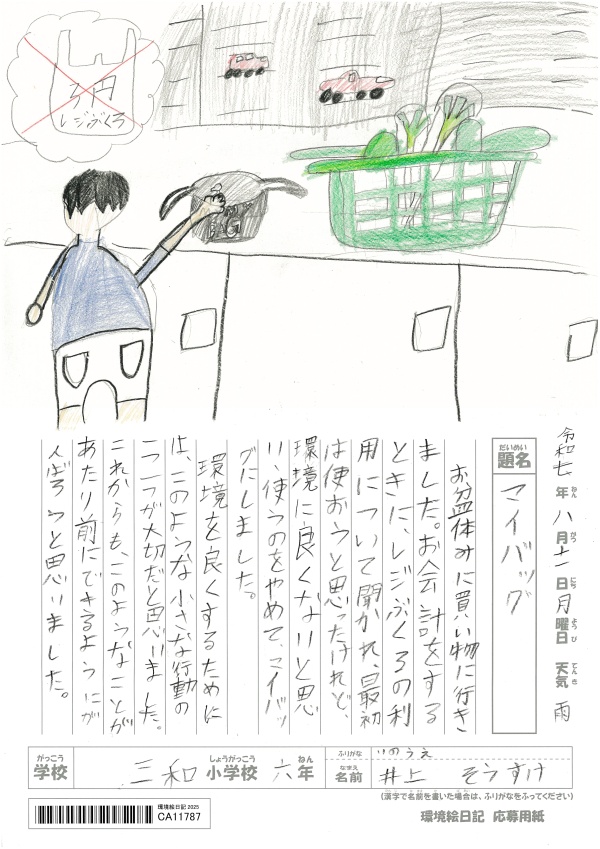 3円
レジぶくろ
令和七年八月十一日月曜日 天気 雨
ねん がつ にち ようび てんき
だいめい
題名
マイバッグ
お盆休みに買い物に行き
ました。お会計をする
ときに、レジぶくろの利
用について聞かれ、最初
は使おうと思ったけれど、
環境に良くないと思
い、使うのをやめて、マイバッ
グにしました。
環境を良くするために
は、このような小さな行動の
一つ一つが大切だと思いました。
これからも、このようなことが
あたり前にできるようにが
んばろうと思いました。
がっこう しょうがっこう ねん
学校 三和 小学校 六年
ふりがな いのうえ
なまえ
名前 井上 そうすけ
(漢字で名前を書いた場合は、ふりがなをふってください)
環境絵日記 2025
CA11787
環境絵日記 応募用紙